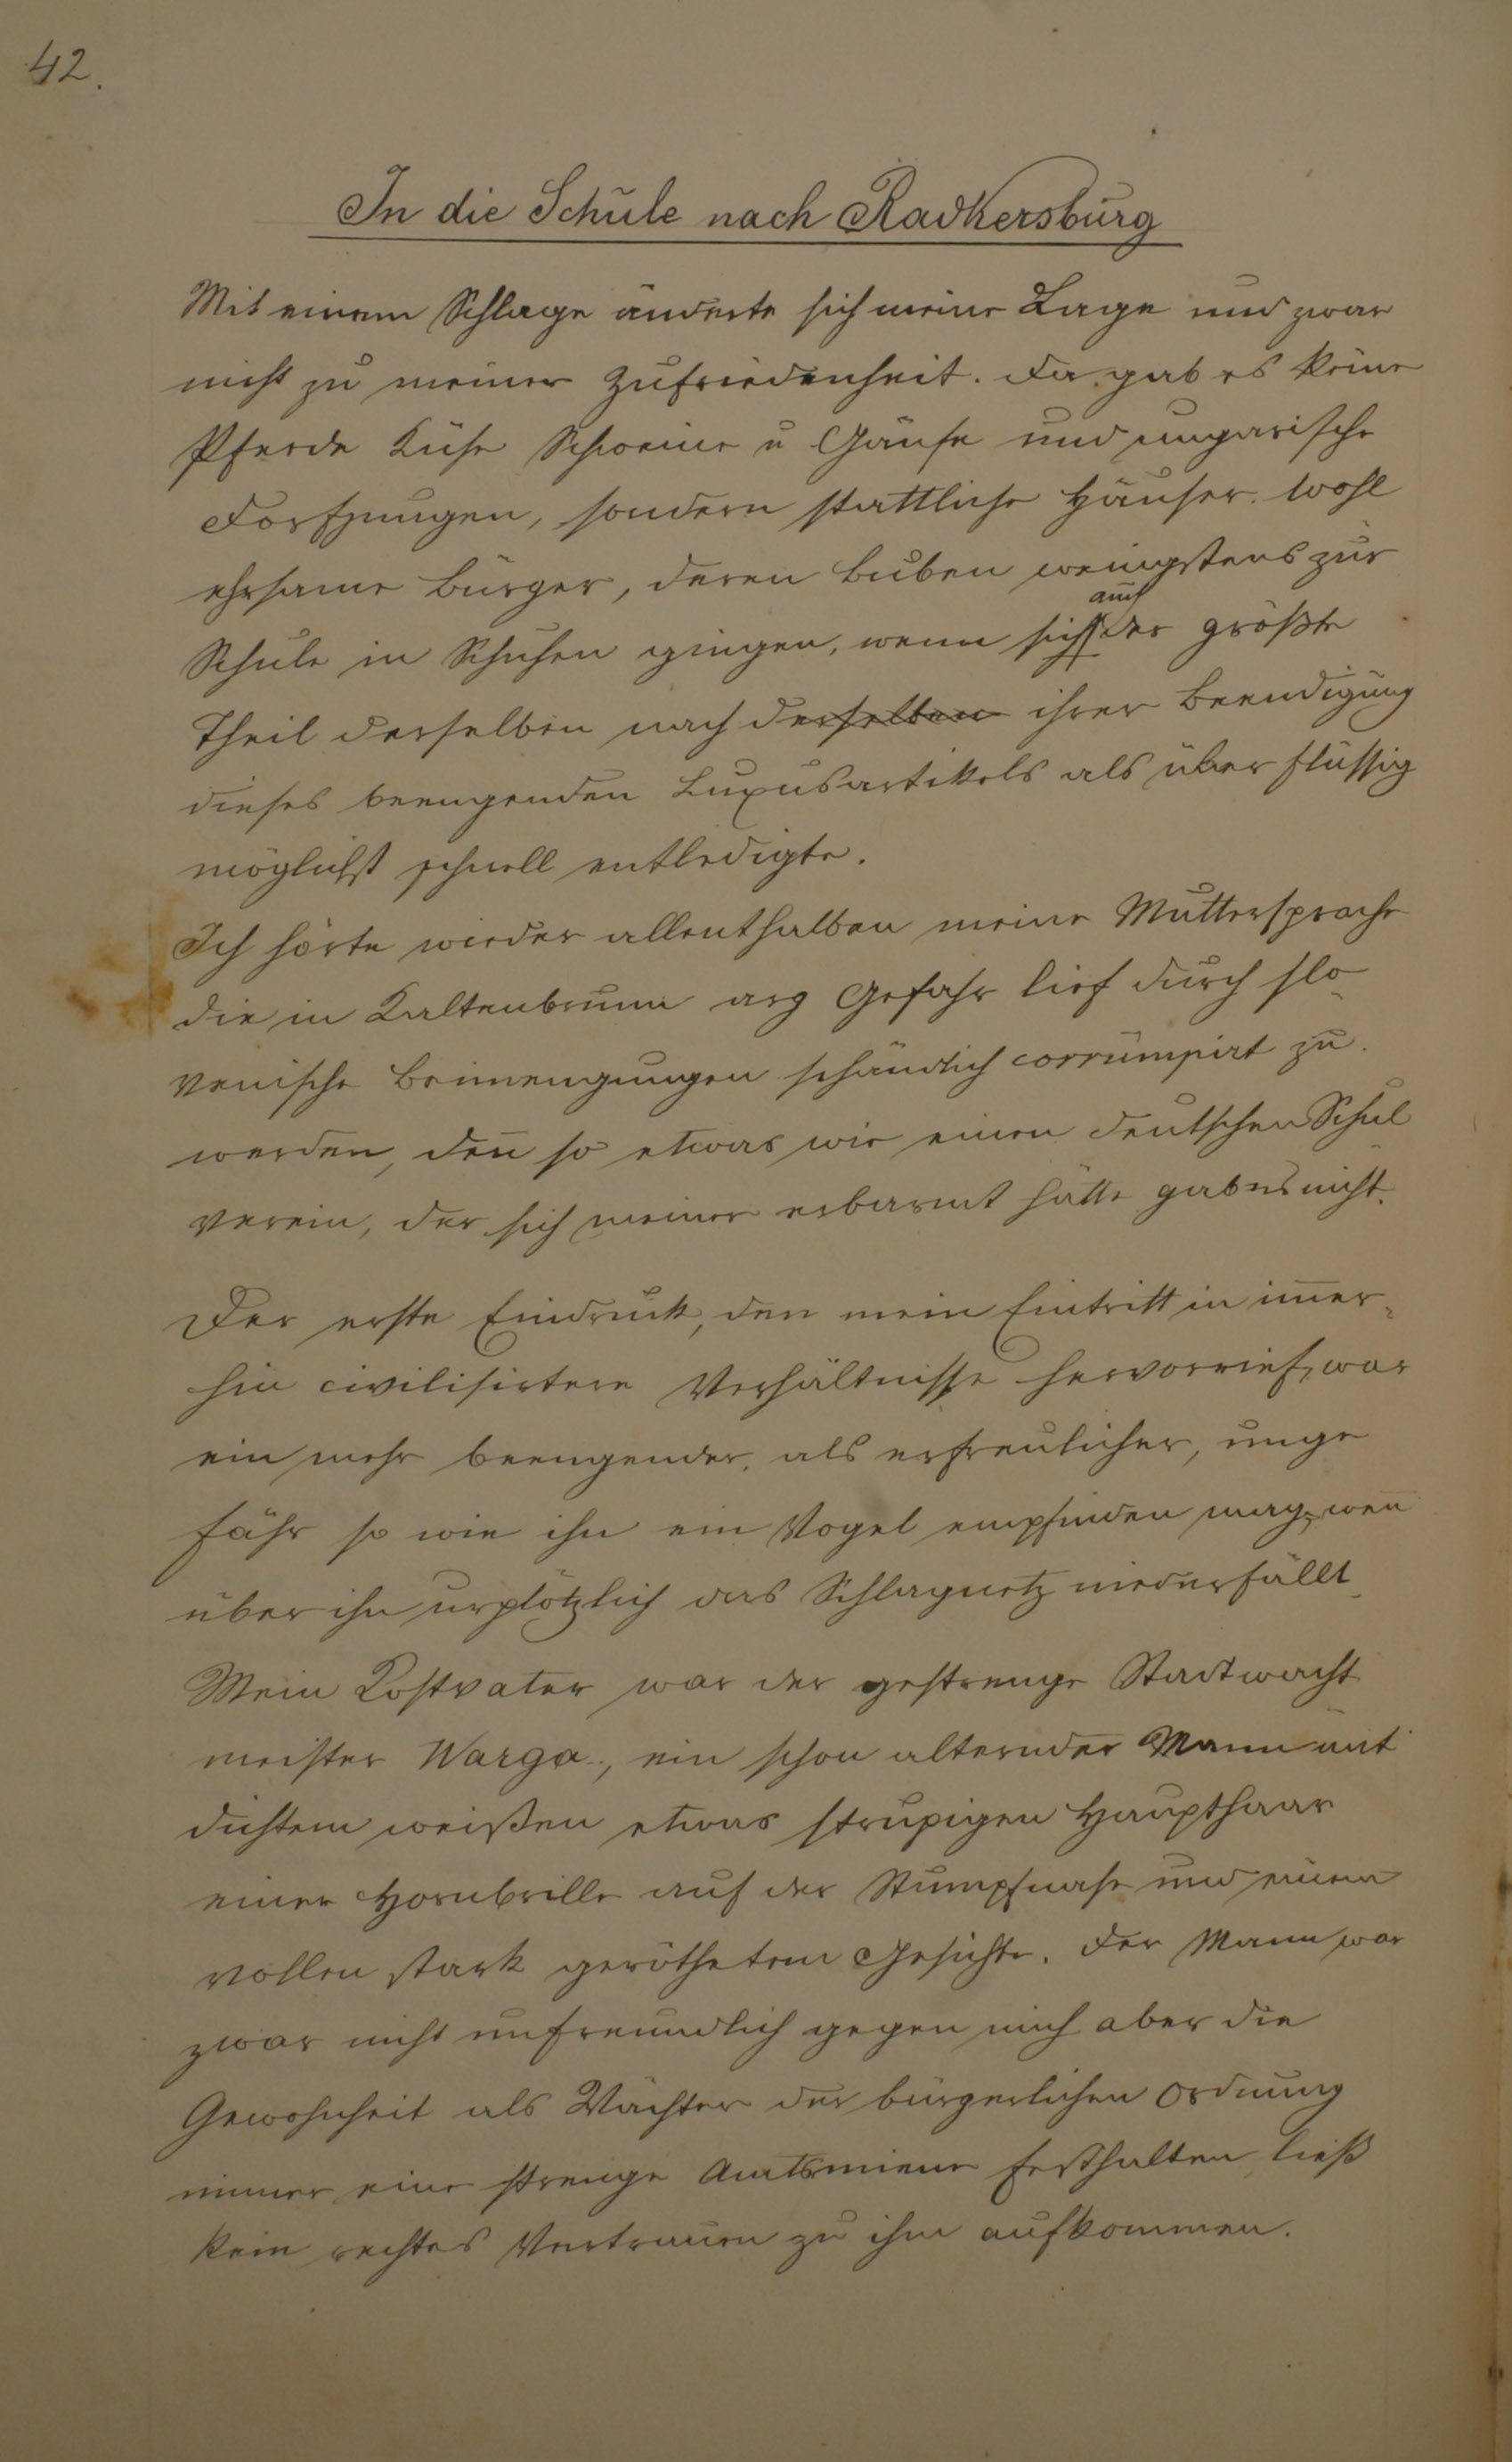 42.
In die Schule nach Radkersburg
Mit einem Schlage änderte sich meine Lage und zwar
nicht zu meiner Zufriedenheit. Da gab es keine
Pferde Kühe Schweine u Gänse und ungarische
sondern stattliche Häuser. wohl
ehrsame Bürger, deren Buben wenigstens zur
auch
Schule in Schuhen gingen, wenn sich der größte
Theil derselben nach derselben ihrer Beendigung
dieses beengenden Luxusartikels als überflüssig
möglichst schnell entledigte.
Ich hörte wieder allenthalben meine Muttersprache
die in Kaltenbrunn arg Gefahr lief durch slo
venische Beimengungen schändlich corrumpirt zu
werden, den̄ so etwas wie einen deutschen Schul
verein, der sich meiner erbarmt hätte gab es nicht.
Der erste Eindruck, den mein Eintritt in im̄er-
hin civilisirtere Verhältnisse hervorrief, war
ein mehr beengender, als erfreulicher, unge
fähr so wie ihn ein Vogel empfinden mag, wen̄
über ihn urplötzlich das Schlagnetz niederfällt
Mein Kostvater war der gestrenge Stadtwacht
meister Warga, ein schon alternder Mann mit
dichtem weißen etwas strupigen Haupthaar
einer Hornbrille auf der Stumpfnase und einem
vollen stark geröthetem Gesichte. Der Mann war
zwar nicht unfreundlich gegen mich aber die
Gewohnheit als Wächter der bürgerlichen Ordnung
immer eine strenge Amtsmiene festhalten ließ
kein rechtes Vertrauen zu ihm aufkommen.